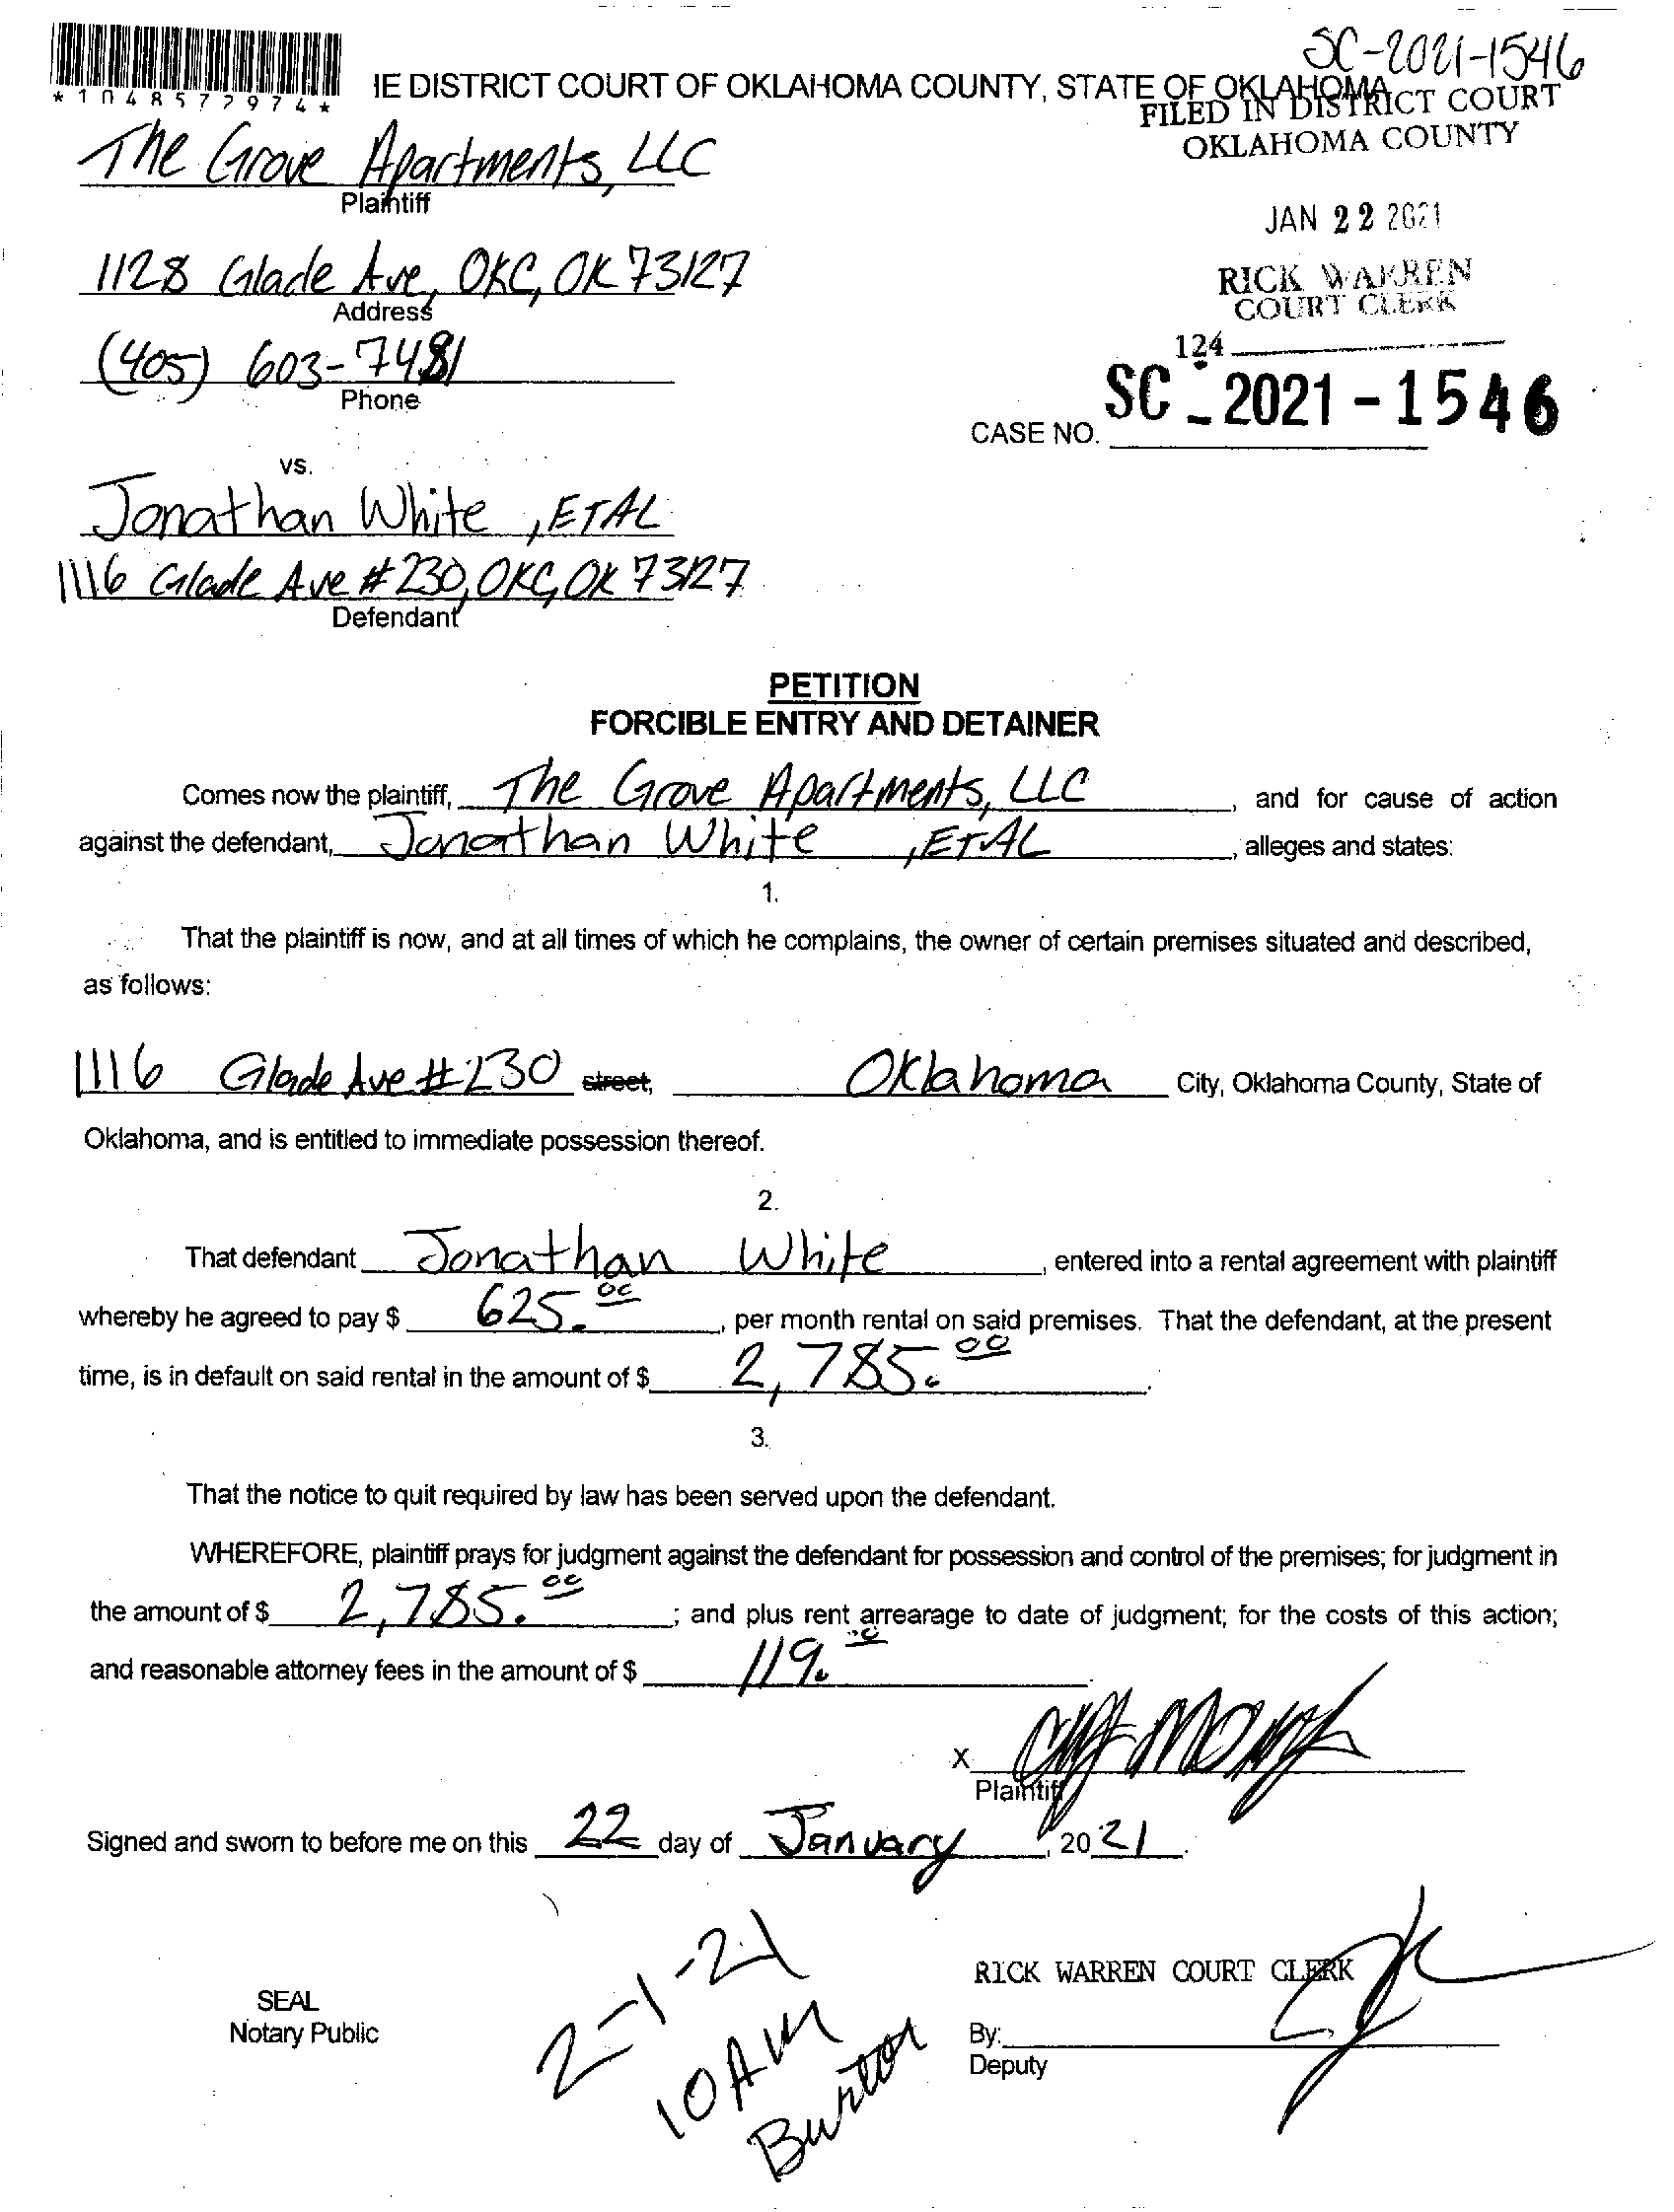 SC-2021-1546
*1048577974*
IE DISTRICT COURT OF OKLAHOMA COUNTY, STATE OF OKLAHOMA
FILED IN DISTRICT COURT
OKLAHOMA COUNTY
The Grove Apartments, LLC
Plaintiff
JAN 22 2021
1128 Glade Ave, OKC, OK 73127
Address
RICK WARREN
COURT CLERK
(405) 603-7481
Phone
124
CASE NO. SC-2021-1546
vs.
Jonathan White, ETAL
1116 Glade Ave #230, OKC, OK 73127
Defendant
PETITION
FORCIBLE ENTRY AND DETAINER
Comes now the plaintiff, The Grove Apartments, LLC, and for cause of action
against the defendant, Jonathan White, ETAL, alleges and states:
1.
That the plaintiff is now, and at all times of which he complains, the owner of certain premises situated and described,
as follows:
1116 Glade Ave #230 street, Oklahoma City, Oklahoma County, State of
Oklahoma, and is entitled to immediate possession thereof.
2.
That defendant Jonathan White, entered into a rental agreement with plaintiff
whereby he agreed to pay $ 625.00, per month rental on said premises. That the defendant, at the present
time, is in default on said rental in the amount of $ 2,785.00.
3.
That the notice to quit required by law has been served upon the defendant.
WHEREFORE, plaintiff prays for judgment against the defendant for possession and control of the premises; for judgment in
the amount of $ 2,785.00; and plus rent arrearage to date of judgment; for the costs of this action;
and reasonable attorney fees in the amount of $ 119.00.
X
Plaintiff
Signed and sworn to before me on this 22 day of January, 2021.
2-1-21
10 AM
Burton
RICK WARREN COURT CLERK
SEAL
Notary Public
By:
Deputy